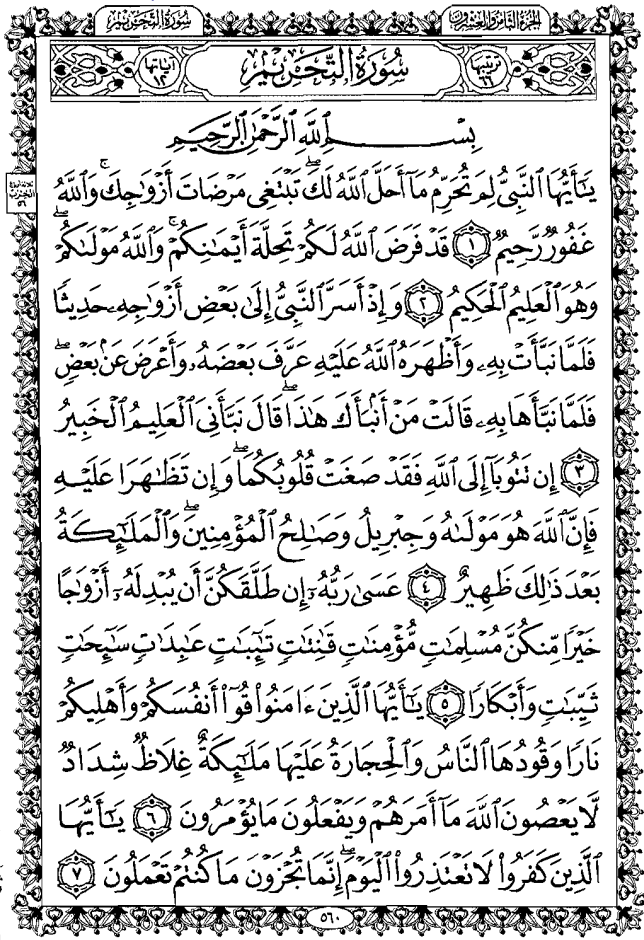 سُورَةُ التَّحْرِيمِ
الجُزْءُ الثَّامِنُ وَالْعِشْرُونَ
ترتيبها ٦٦
سُورَةُ التَّحْرِيمِ
آياتها ١٢
بِسْمِ ٱللَّهِ ٱلرَّحْمَٰنِ ٱلرَّحِيمِ
يَٰٓأَيُّهَا ٱلنَّبِىُّ لِمَ تُحَرِّمُ مَآ أَحَلَّ ٱللَّهُ لَكَ ۖ تَبْتَغِى مَرْضَاتَ أَزْوَٰجِكَ ۚ وَٱللَّهُ
غَفُورٌ رَّحِيمٌ ١ قَدْ فَرَضَ ٱللَّهُ لَكُمْ تَحِلَّةَ أَيْمَٰنِكُمْ ۚ وَٱللَّهُ مَوْلَىٰكُمْ ۖ
وَهُوَ ٱلْعَلِيمُ ٱلْحَكِيمُ ٢ وَإِذْ أَسَرَّ ٱلنَّبِىُّ إِلَىٰ بَعْضِ أَزْوَٰجِهِۦ حَدِيثًا
فَلَمَّا نَبَّأَتْ بِهِۦ وَأَظْهَرَهُ ٱللَّهُ عَلَيْهِ عَرَّفَ بَعْضَهُۥ وَأَعْرَضَ عَنۢ بَعْضٍ ۖ
فَلَمَّا نَبَّأَهَا بِهِۦ قَالَتْ مَنْ أَنۢبَأَكَ هَٰذَا ۖ قَالَ نَبَّأَنِىَ ٱلْعَلِيمُ ٱلْخَبِيرُ
٣ إِن تَتُوبَآ إِلَى ٱللَّهِ فَقَدْ صَغَتْ قُلُوبُكُمَا ۖ وَإِن تَظَٰهَرَا عَلَيْهِ
فَإِنَّ ٱللَّهَ هُوَ مَوْلَىٰهُ وَجِبْرِيلُ وَصَٰلِحُ ٱلْمُؤْمِنِينَ ۖ وَٱلْمَلَٰٓئِكَةُ
بَعْدَ ذَٰلِكَ ظَهِيرٌ ٤ عَسَىٰ رَبُّهُۥٓ إِن طَلَّقَكُنَّ أَن يُبْدِلَهُۥٓ أَزْوَٰجًا
خَيْرًا مِّنكُنَّ مُسْلِمَٰتٍ مُّؤْمِنَٰتٍ قَٰنِتَٰتٍ تَٰٓئِبَٰتٍ عَٰبِدَٰتٍ سَٰٓئِحَٰتٍ
ثَيِّبَٰتٍ وَأَبْكَارًا ٥ يَٰٓأَيُّهَا ٱلَّذِينَ ءَامَنُوا۟ قُوٓا۟ أَنفُسَكُمْ وَأَهْلِيكُمْ
نَارًا وَقُودُهَا ٱلنَّاسُ وَٱلْحِجَارَةُ عَلَيْهَا مَلَٰٓئِكَةٌ غِلَاظٌ شِدَادٌ
لَّا يَعْصُونَ ٱللَّهَ مَآ أَمَرَهُمْ وَيَفْعَلُونَ مَا يُؤْمَرُونَ ٦ يَٰٓأَيُّهَا
ٱلَّذِينَ كَفَرُوا۟ لَا تَعْتَذِرُوا۟ ٱلْيَوْمَ ۖ إِنَّمَا تُجْزَوْنَ مَا كُنتُمْ تَعْمَلُونَ ٧
٥٦٠